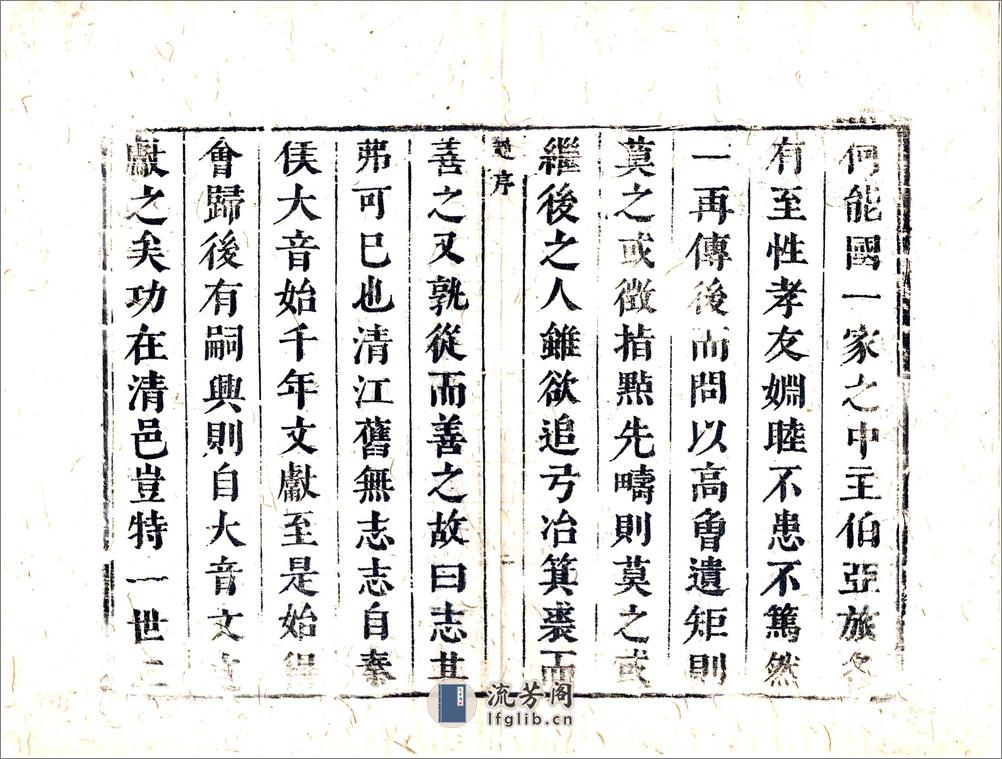 何能國一家之中主伯亞旅各
有至性孝友婣睦不患不篤然
一再傳後而問以高魯遺矩則
莫之或徵指點先疇則莫之或
繼後之人雖欲追弓冶箕裘而
趙序
二
善之又孰從而善之故曰志其
茀可已也清江舊無志志自秦
侯大音始千年文獻至是始得
會歸後有嗣興則自大音文
獻之矣功在清邑豈特一世二
流芳阁
lfglib.cn